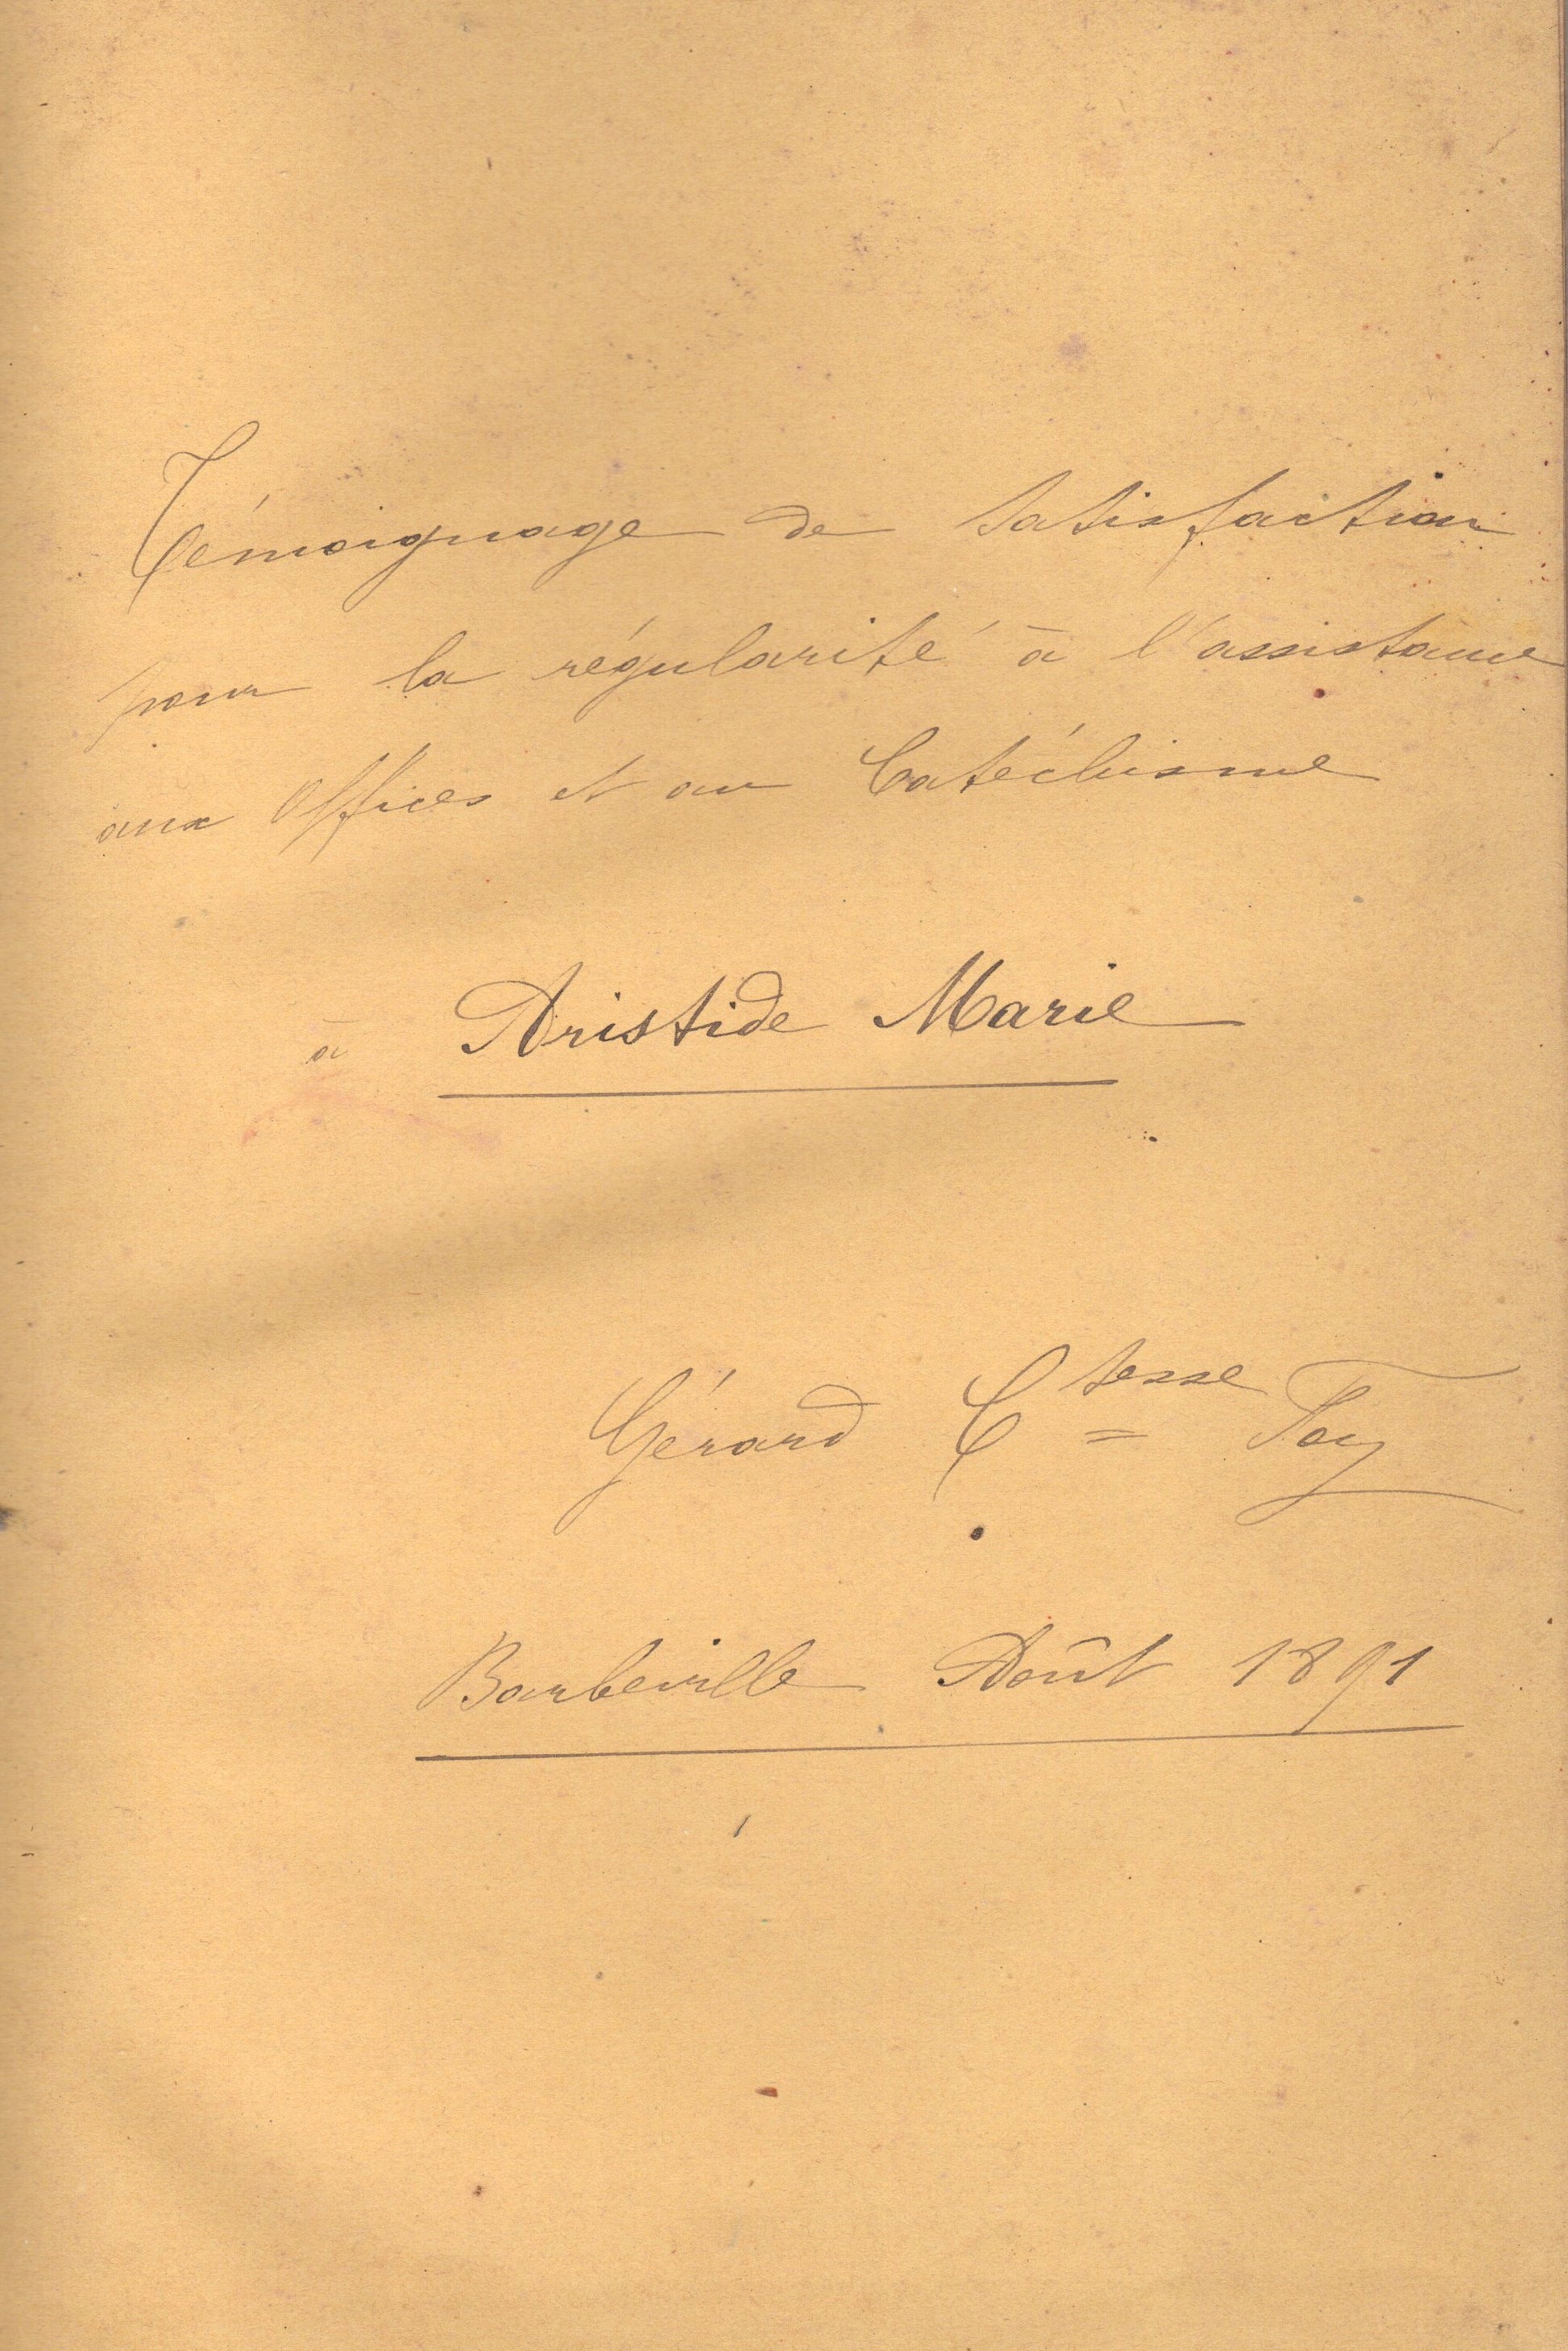 Témoignage de satisfaction
pour la régularité à l'assistance
aux Offices et au Catéchisme
à Aristide Marie
Gérard Ctesse Foy
Barbeville Août 1891